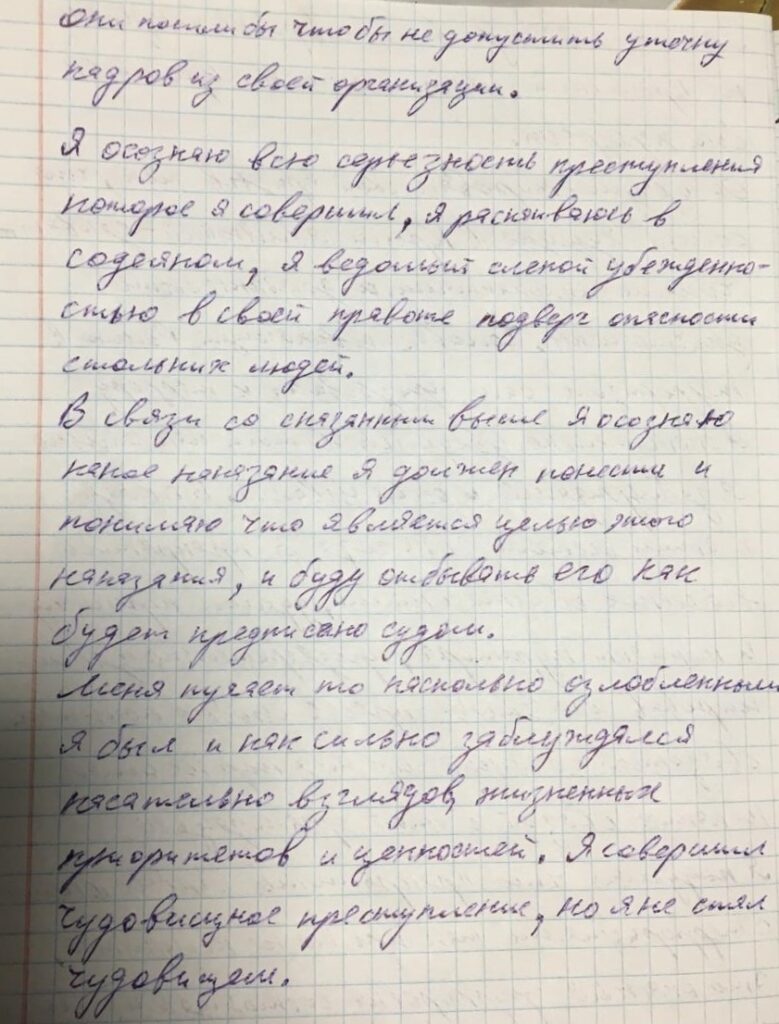 они пошли бы чтобы не допустить утечку
кадров из своей организации.
Я осознаю всю серьезность преступления
которое я совершил, я раскаиваюсь в
содеяном, я ведомый слепой убежденно-
стью в своей правоте подверг опасности
стольких людей.
В связи со сказанным выше я осознаю
какое наказание я должен понести и
понимаю что является целью этого
наказания, и буду отбывать его как
будет предписано судом.
Меня пугает то насколько озлобленным
я был и как сильно заблуждался
касательно взглядов, жизненных
приоритетов и ценностей. Я совершил
чудовищное преступление, но я не стал
чудовищем.